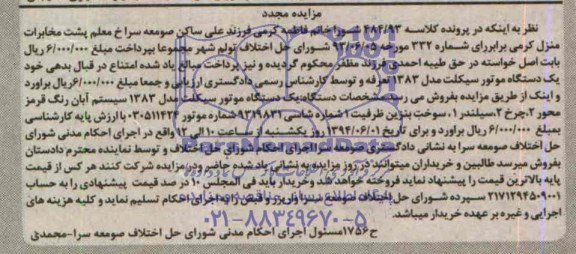 مزایده مجدد
نظر به اینکه در پرونده کلاسه ۴۰۴/۹۳ شورا خانم فاطمه کرمی فرزند علی ساکن صومعه سرا خ معلم پشت مخابرات
منزل کرمی برابر رای شماره ۳۳۲ مورخه ۹۳/۰۶/۰۵ شورای حل اختلاف تولم شهر مجموعا بپرداخت مبلغ ۶/۰۰۰/۰۰۰ ریال
بابت اصل خواسته در حق طیبه احمدی فرزند مظفر محکوم گردیده و نیز پرداخت مبالغ یاد شده امتناع در قبال بدهی خود
یک دستگاه موتور سیکلت مدل ۱۳۸۳ تعرفه و توسط کارشناس رسمی دادگستری ارزیابی و جمعا مبلغ ۶/۰۰۰/۰۰۰ ریال براورد
و اینک از طریق مزایده بفروش می رسد. مشخصات دستگاه: یک دستگاه موتور سیکلت مدل ۱۳۸۳ سیستم آبان رنگ قرمز
محور ۲، چرخ ۲، سیلندر ۱، سوخت بنزین ظرفیت ۱ شماره شاسی ۹۳۱۹۸۳۱ شماره موتور ۰۳۰۵۱۱۴۲۴ با ارزش پایه کارشناسی
بمبلغ ۶/۰۰۰/۰۰۰ ریال براورد و برای تاریخ ۱۳۹۴/۰۶/۰۱ روز یکشنبه از ساعت ۱۰ الی ۱۲ واقع در اجرای احکام مدنی شورای
حل اختلاف صومعه سرا به نشانی دادگستری صومعه سرا اجرای احکام شورای حل اختلاف و توسط نماینده محترم دادستان
بفروش میرسد طالبین و خریداران میتوانند در روز مزایده به نشانی یاد شده حاضر و در مزایده شرکت کنند هر کس از قیمت
پایه بالاترین قیمت را پیشنهاد نماید فروخته خواهد شد و خریدار باید فی المجلس ۱۰ در صد قیمت پیشنهادی را به حساب
۲۱۷۱۲۹۴۵۰۹۰۰۱ سپرده شورای حل اختلاف صومعه سرا واریز و قبض را به اجرای احکام تسلیم نماید و کلیه هزینه های
اجرایی و غیره بر عهده خریدار میباشد.
۰۲۱-۸۸۳۴۹۶۷۰-۵
ح ۱۷۵۶ مسئول اجرای احکام مدنی شورای حل اختلاف صومعه سرا-محمدی